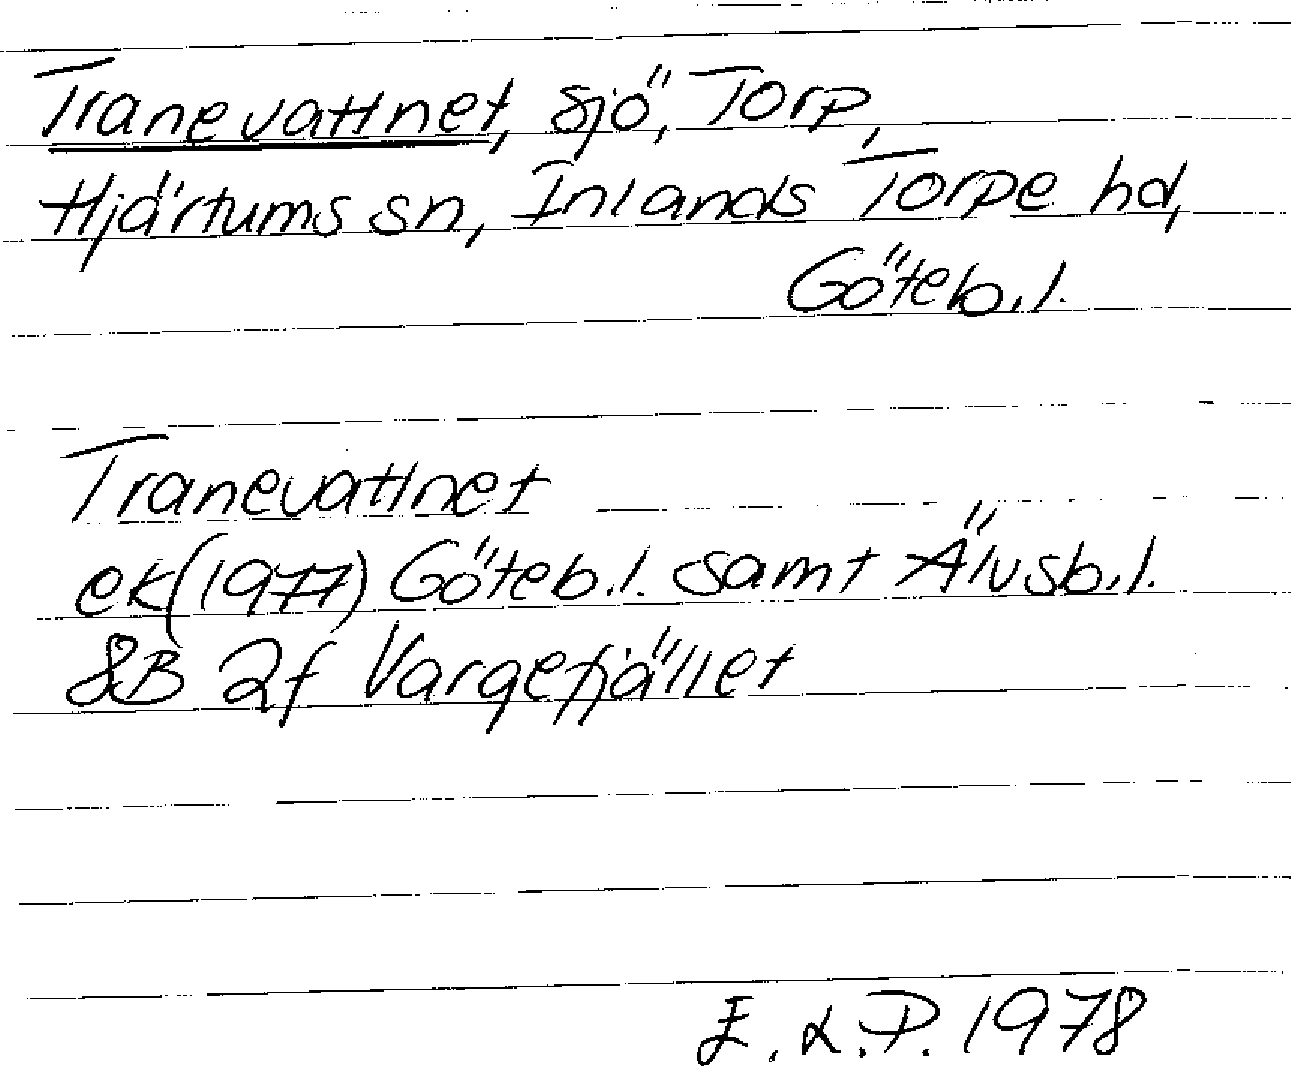 Tranevattnet, sjö, Torp,
Hjärtums sn, Inlands Torpe hd,
Göteb.l.
Tranevattnet
ek(1977) Göteb.l. samt Älvsb.l.
8B 2f Vargefjället
E.L.P. 1978